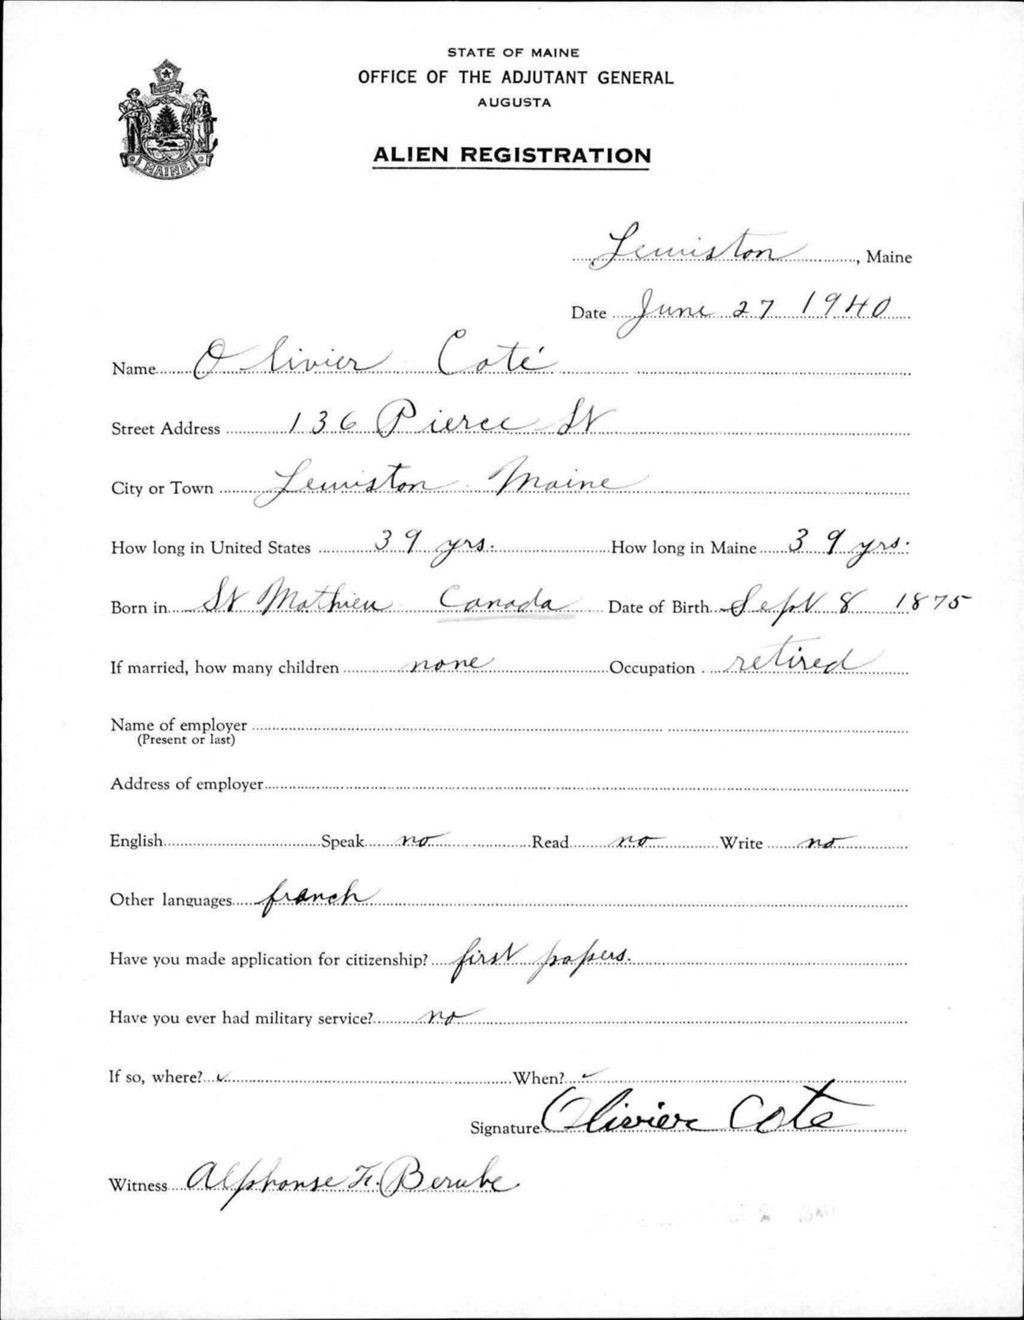 STATE OF MAINE
OFFICE OF THE ADJUTANT GENERAL
AUGUSTA
ALIEN REGISTRATION
MAINE
Lewiston, Maine
Date June 27 1940
Name Olivier Coté
Street Address 136 Pierce St
City or Town Lewiston Maine
How long in United States 39 yrs. How long in Maine 39 yrs.
Born in St Mathieu Canada Date of Birth Sept 8 1875
If married, how many children none Occupation retired
Name of employer
(Present or last)
Address of employer
English Speak no Read no Write no
Other languages franch
Have you made application for citizenship? first papers.
Have you ever had military service? no
If so, where? ✓ When? ✓
Signature Olivier Cote
Witness Alphonse F. Berube